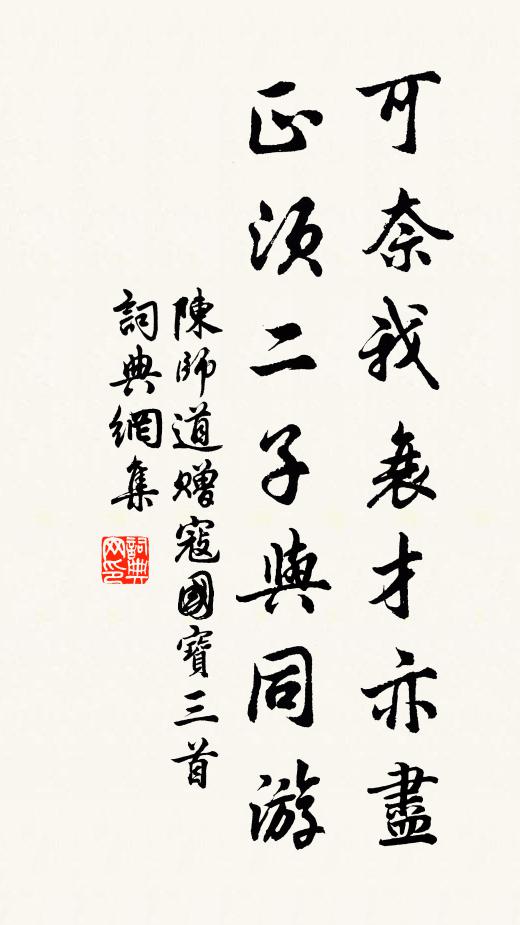 可奈我衰才亦盡
正須二子與同游
陳師道贈寇國寶三首
詞典網集
詞典網印